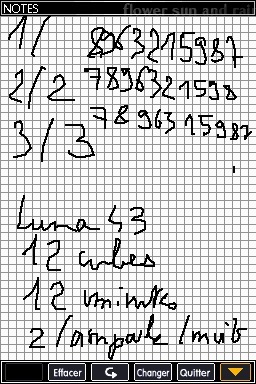 NOTES
flower sun and rai
1/ 8963215987
2/2 7896321598
3/3 78 963 15987
Luna 43
12 cubes
12 vminutes
2/
Effacer Changer Quitter